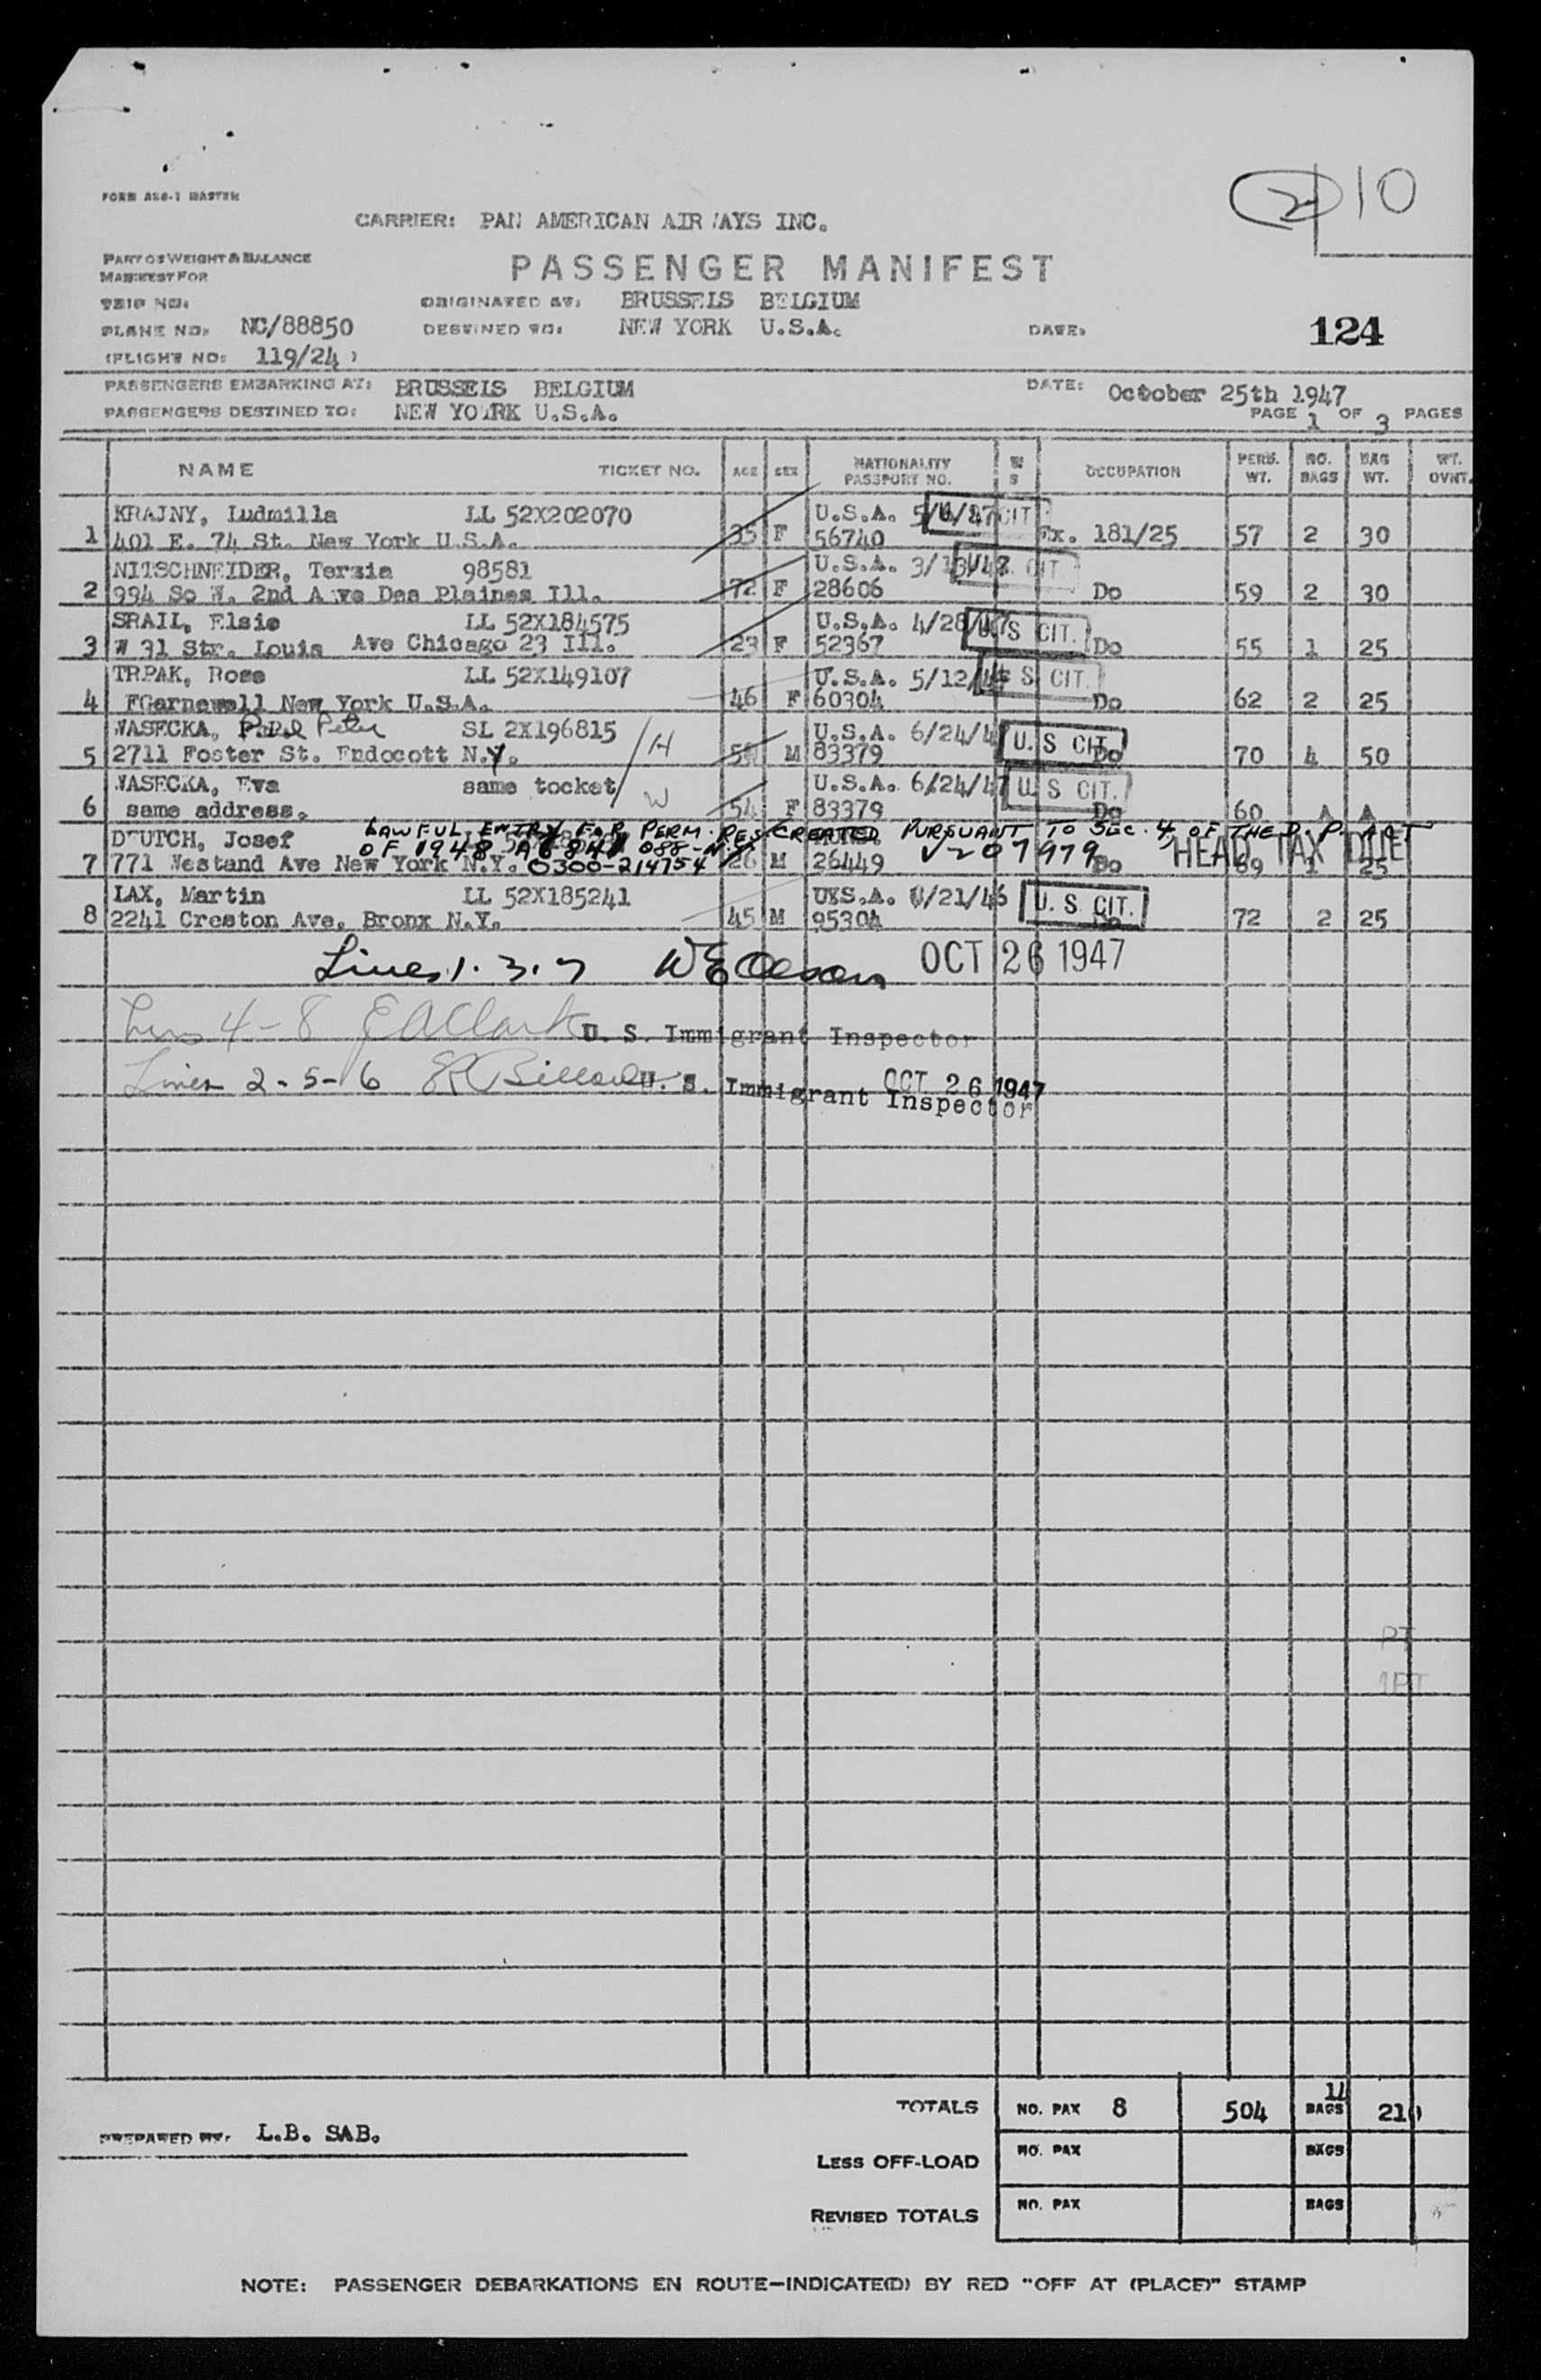 FORM AS6-1 MASTER
2 10
CARRIER: PAN AMERICAN AIR AYS INC.
PART OF WEIGHT & BALANCE
MANIFEST FOR
PASSENGER MANIFEST
TRIP NO:
ORIGINATED AT: BRUSSELS BELGIUM
PLANE NO: NC/88850 DESTINED TO: NEW YORK U.S.A. DATE: 124
(FLIGHT NO: 119/24 )
PASSENGERS EMBARKING AT: BRUSSELS BELGIUM DATE: October 25th 1947
PASSENGERS DESTINED TO: NEW YORK U.S.A. PAGE 1 OF 3 PAGES
NAME TICKET NO. AGE SEX NATIONALITY PASSPORT NO. M S OCCUPATION PERS. WT. NO. BAGS BAG WT. WT. OVNT.
KRAJNY, Ludmilla LL 52X202070 U.S.A. CIT
1 401 E. 74 St. New York U.S.A. 35 F 56740 Ex. 181/25 57 2 30
NITSCHNEIDER, Terzia 98581 U.S.A. CIT
2 994 So W. 2nd A ve Des Plaines Ill. 72 F 28606 Do 59 2 30
SRAIL, Elsie LL 52X184575 U.S.A. 4/28/47 U. S CIT.
3 W 31 Str. Louis Ave Chicago 23 Ill. 23 F 52367 Do 55 1 25
TRPAK, Rose LL 52X149107 U.S.A. 5/12/4 S CIT.
4 New York U.S.A. 46 F 60304 Do 62 2 25
WASECKA, Peter SL 2X196815 H U.S.A. 6/24/4 U. S CIT.
5 2711 Foster St. Endocott N.Y. M 83379 Do 70 4 50
WASECKA, Eva same tocket W U.S.A. 6/24/47 U. S CIT.
6 same address. 54 F 83379 Do 60 A A
DEUTCH, Josef LAWFUL ENTRY FOR PERM. RES CREATED PURSUANT TO SEC. 4 OF THE D. P. ACT
OF 1948 088-N.Y. V207979 HEAD TAX DUE
7 771 Westand Ave New York N.Y. 0300-214754 26 M 26449 Do 69 1 25
LAX, Martin LL 52X185241 U.S.A. /21/46 U. S. CIT.
8 2241 Creston Ave. Bronx N.Y. 45 M 95304 Do 72 2 25
Lines 1. 3. 7 W E Olson OCT 26 1947
Lines 4-8 E A Clark U. S. Immigrant Inspector
Lines 2-5-6 U. S. Immigrant Inspector OCT 26 1947
PT
1PT
TOTALS NO. PAX 8 504 11 BAGS 210
PREPARED BY: L.B. SAB.
LESS OFF-LOAD NO. PAX BAGS
REVISED TOTALS NO. PAX BAGS
NOTE: PASSENGER DEBARKATIONS EN ROUTE—INDICATE(D) BY RED "OFF AT (PLACE)" STAMP